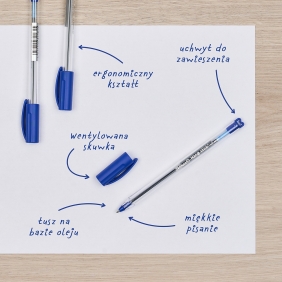 uchwyt do
zawieszenia
ergonomiczny
kształt
wentylowana
skuwka
tusz na
bazie oleju
miękkie
pisanie